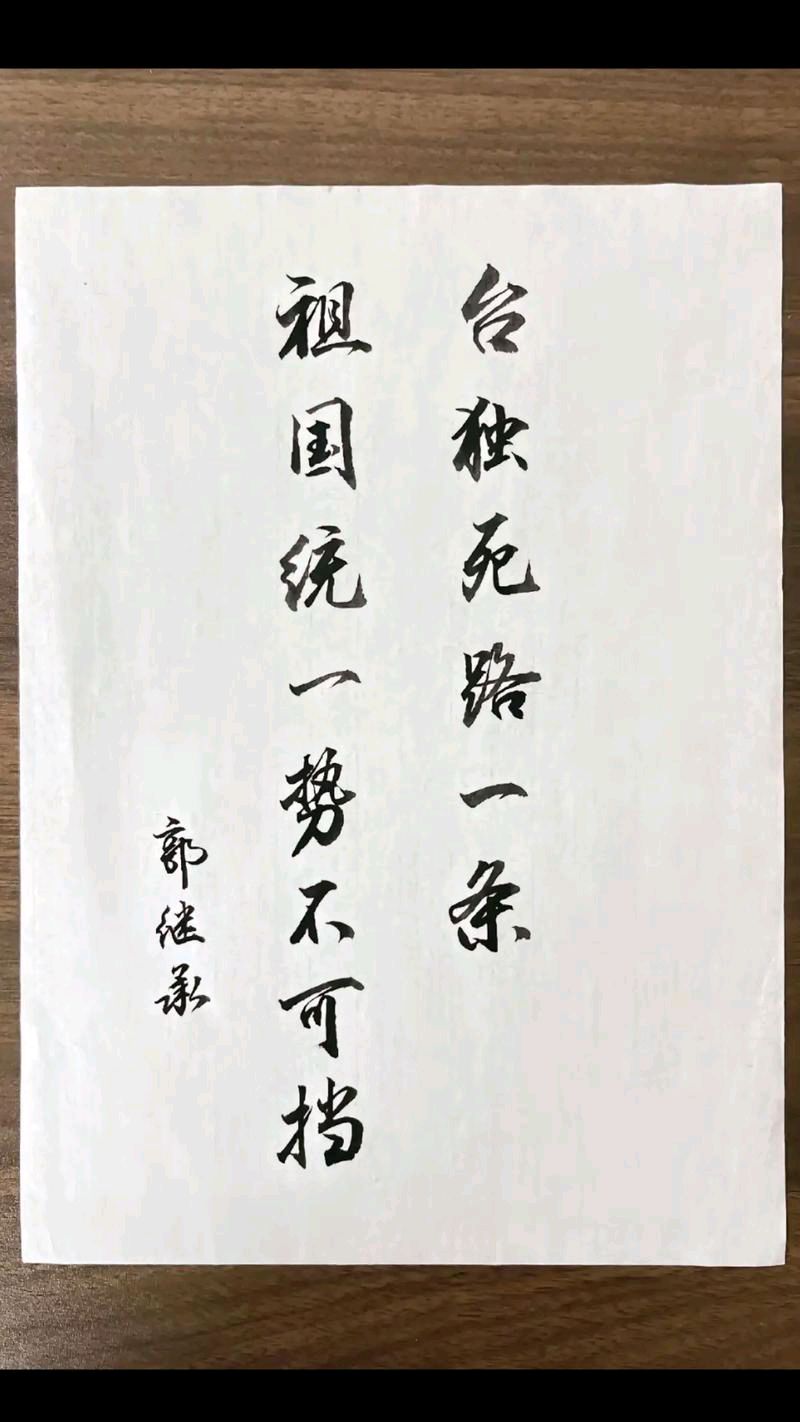 台独死路一条
祖国统一势不可挡
郭继承